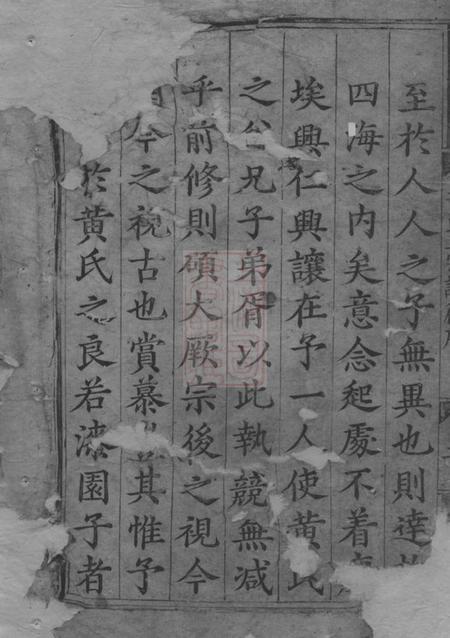 至於人人之子無異也則達
四海之内矣意念起處不着
埃興仁興讓在予一人使黄氏
之父兄子弟胥以此執競無减
乎前修則碩大厥宗後之視今
今之視古也賞慕其惟予
於黄氏之良若漆園子者